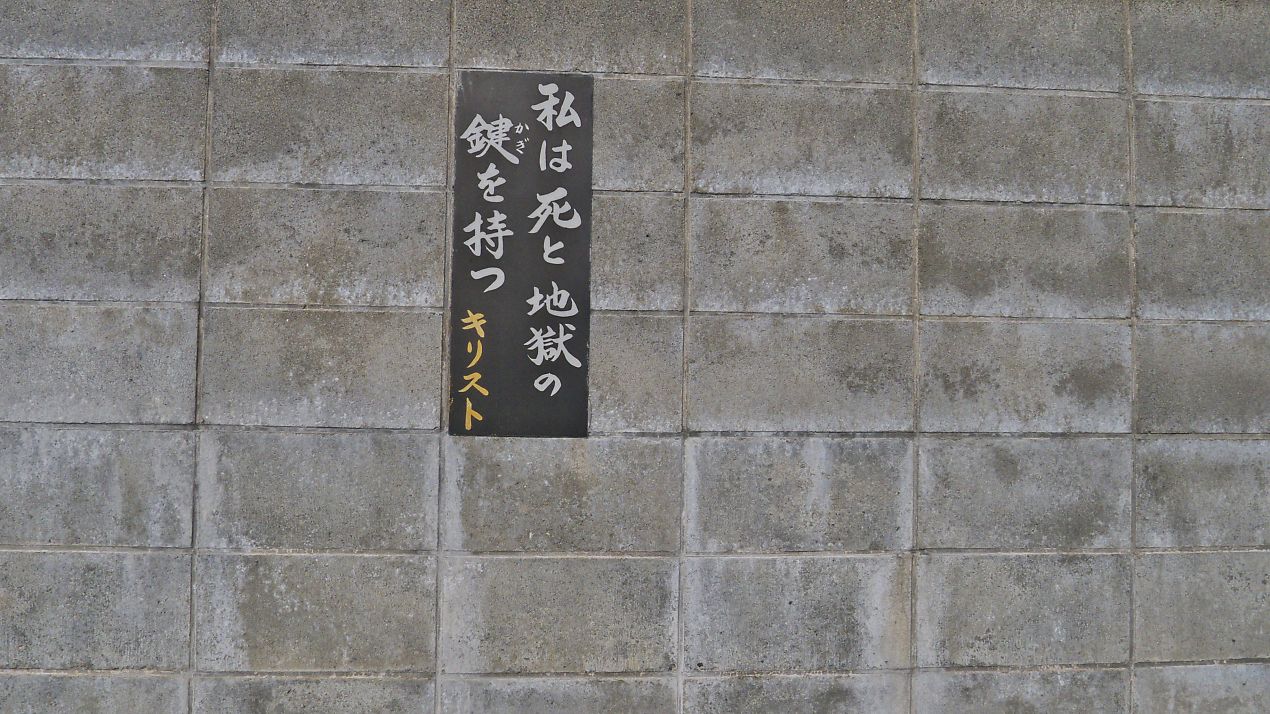 私は死と地獄の
鍵を持つ
かぎ
キリスト